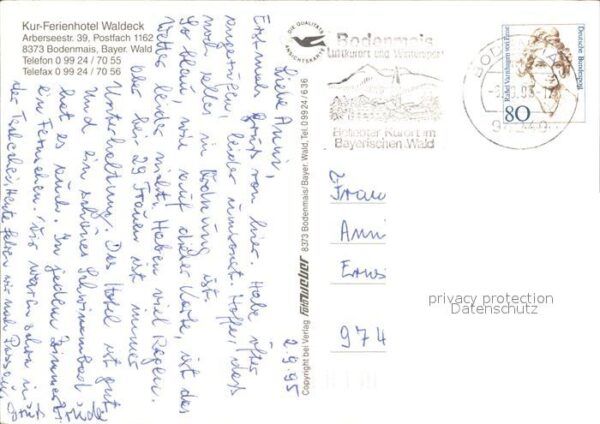 Kur-Ferienhotel Waldeck
Arberseestr. 39, Postfach 1162
8373 Bodenmais, Bayer. Wald
Telefon 0 99 24 / 70 55
Telefax 0 99 24 / 70 56
DIE QUALITÄTS
ANSICHTSKARTE
Bodenmais
Luftkurort und Wintersport
Beliebter Kurort im
Bayerischen Wald
Deutsche Bundespost
Rahel Varnhagen von Ense
80
2.9.95
Liebe Anni,
Erstmals Gruß von hier. Habe öfter
angerufen, leider umsonst. Hoffe, daß
noch alles in Ordnung ist.
So blau, wie auf dieser Karte, ist das
Wetter leider nicht. Haben viel Regen.
Aber bei 29 Frauen ist immer
Unterhaltung. Das Hotel ist gut
und ein schönes Schwimmbad
hat es auch. In jedem Zimmer
ein Fernseher. Wir waren schon in
der Heute fahren wir nach Passau.
Gruß
Copyright bei Verlag
8373 Bodenmais/Bayer. Wald, Tel. 0 99 24 / 6 36
Frau
Anni
974
privacy protection
Datenschutz